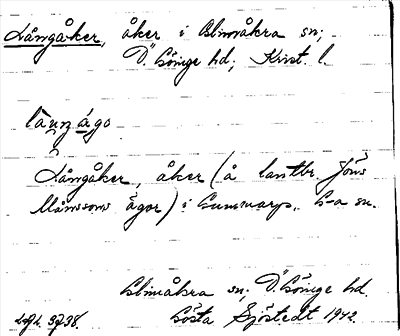 Långåker, åker i Glimåkra sn;
Ö. Göinge hd; Krist. l.
låunågo
Långåker, åker (å lantbr. Jöns
Månssons ägor) i Gummarp, G-a sn.
Glimåkra sn; Ö. Göinge hd.
Gösta Sjöstedt 1942.